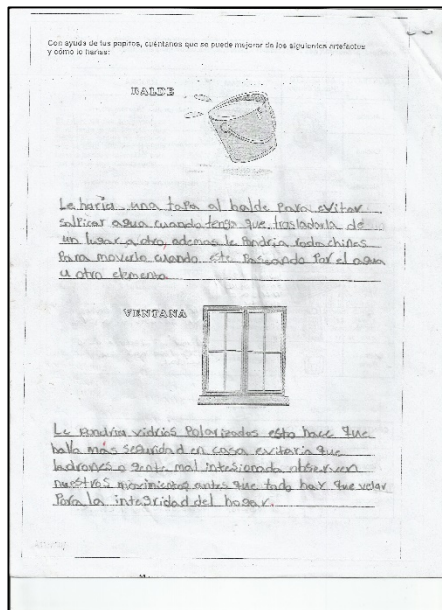 Con ayuda de tus papitos, cuéntanos que se puede mejorar de los siguientes artefactos
y cómo lo harías:
BALDE
Le haria una tapa al balde Para evitar
salpicar agua cuando tenga que trasladarla de
un lugar a otro, ademas le Pondria rodachinas
Para moverlo cuando este Pasando Por el agua
u otro elemento
VENTANA
Le Pondria vidrios Polarizados esto hace que
halla más seguridad en casa evitaria que
ladrones o gente mal intesionada observen
nuestros movimientos antes que todo hay que velar
Para la integridad del hogar.